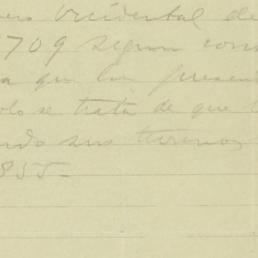 Occidental de
709 segun cons
a que las present
olo se trata de que l
ndo sus terrenos
855-